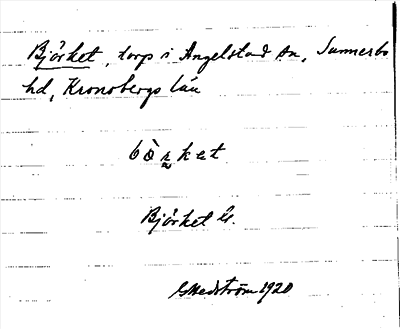 Björket, torp i Angelstad sn, Sunnerbo
hd, Kronobergs län
bö̀rket
Björket
GHedström 1920